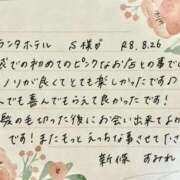 ランタホテル S様が R8.8.26
感での初めてのピンクなお店との事で
ノリが良くてとても楽しかったです♪
んでも喜んでもらえて良かったです
殿の毛切った後にお会い出来てよか
です！またもっとえっちな事させてさ
新條 すみれ